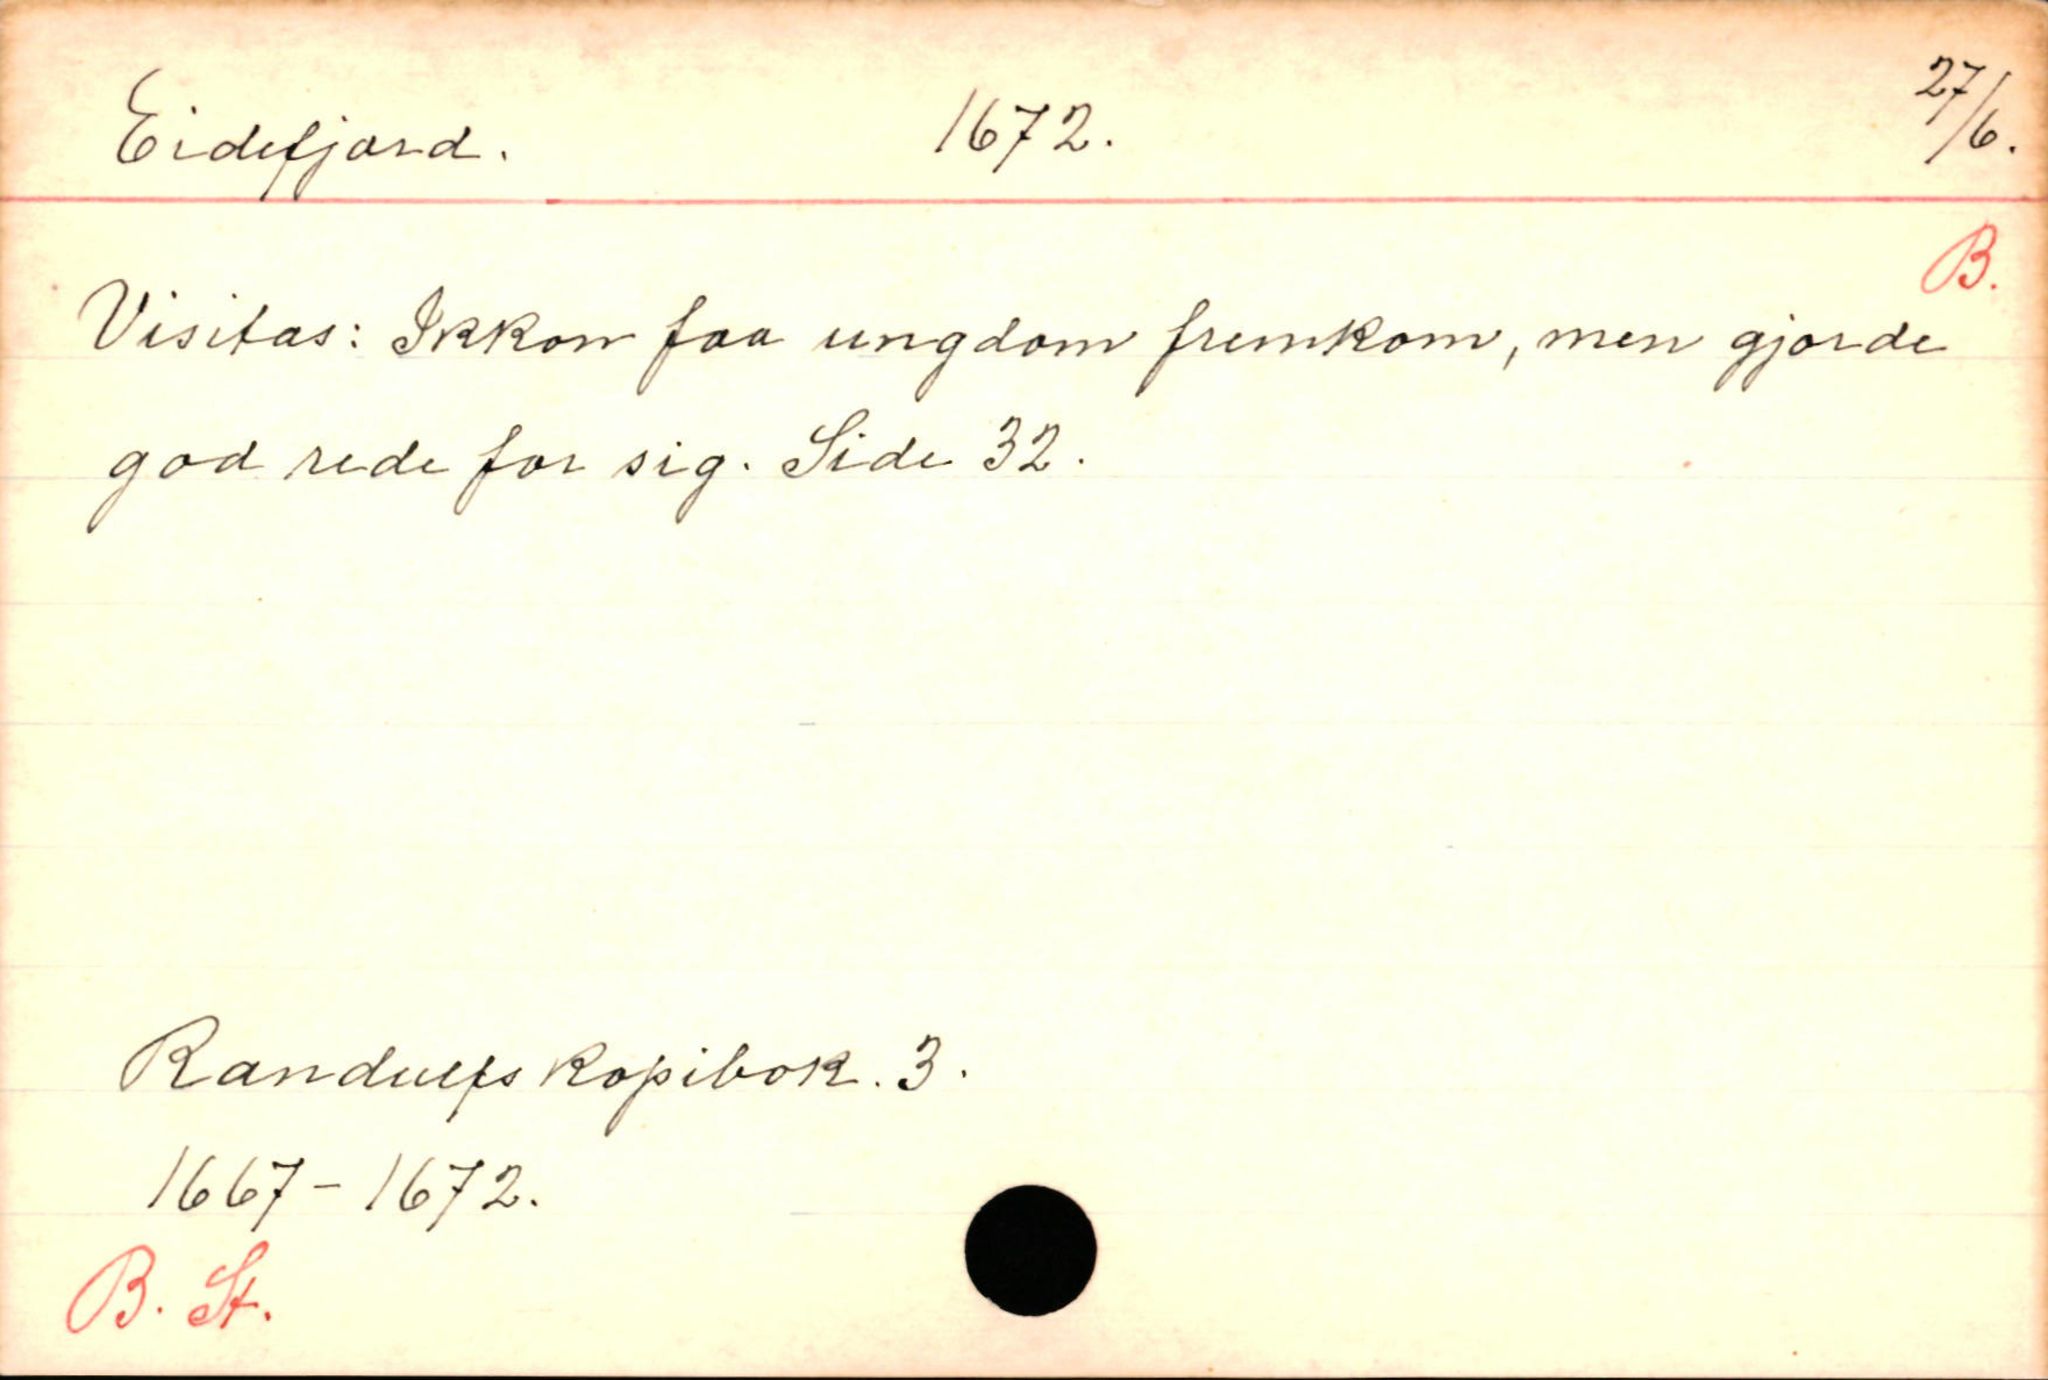 Eidefjord. 1672. 27/6.
B.
Visitas: Ikkon faa ungdom fremkom, men gjorde
god rede for sig. Side 32.
Randulfs kopibok. 3.
1667-1672.
B. St.